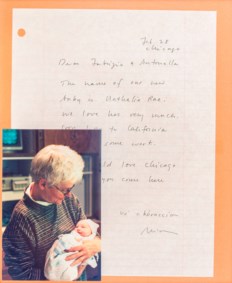 Feb. 28
Chicago
Dear Fabrizio & Antonella
The name of our new
baby is Nathalie Rae.
We love her very much.
to California
some work.
love Chicago
you come here